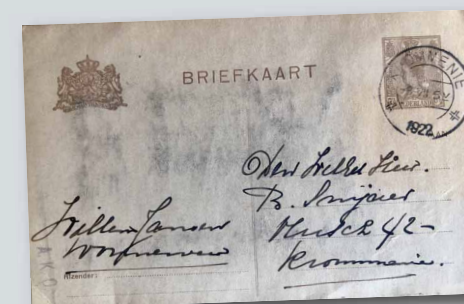 BRIEFKAART
KROMMENIE
1922
Den WelEd. Heer.
B. Snijder
42-
Krommenie.
Willem Jansen
Wormerveer
Afzender:
AKO